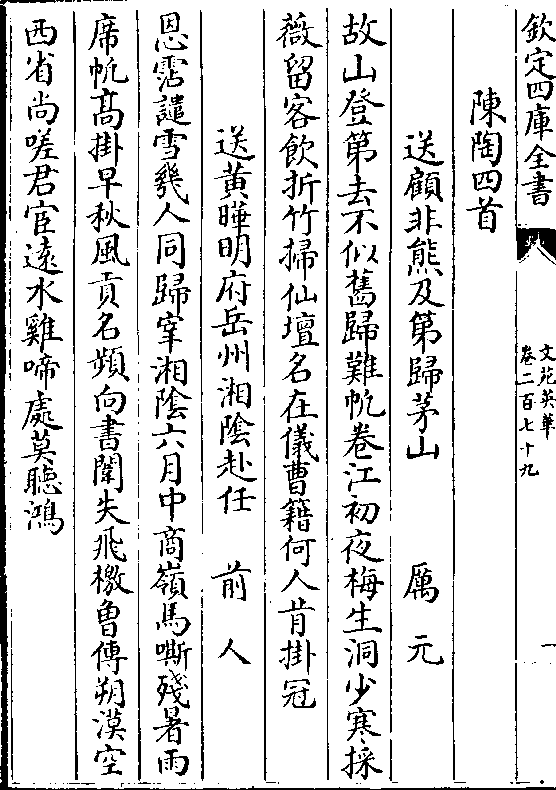 欽定四庫全書
文苑英華
卷二百七十九
一
陳陶四首
送顧非熊及第歸茅山 厲元
故山登第去不似舊歸難帆卷江初夜梅生洞少寒採
薇留客飲折竹掃仙壇名在儀曹籍何人肯掛冠
送黃曄明府岳州湘陰赴任 前人
恩霑譴雪幾人同歸宰湘陰六月中商嶺馬嘶殘暑雨
席帆高掛早秋風貢名頻向書闈失飛檄曾傳朔漠空
西省尚嗟君宦遠水雞啼處莫聽鴻